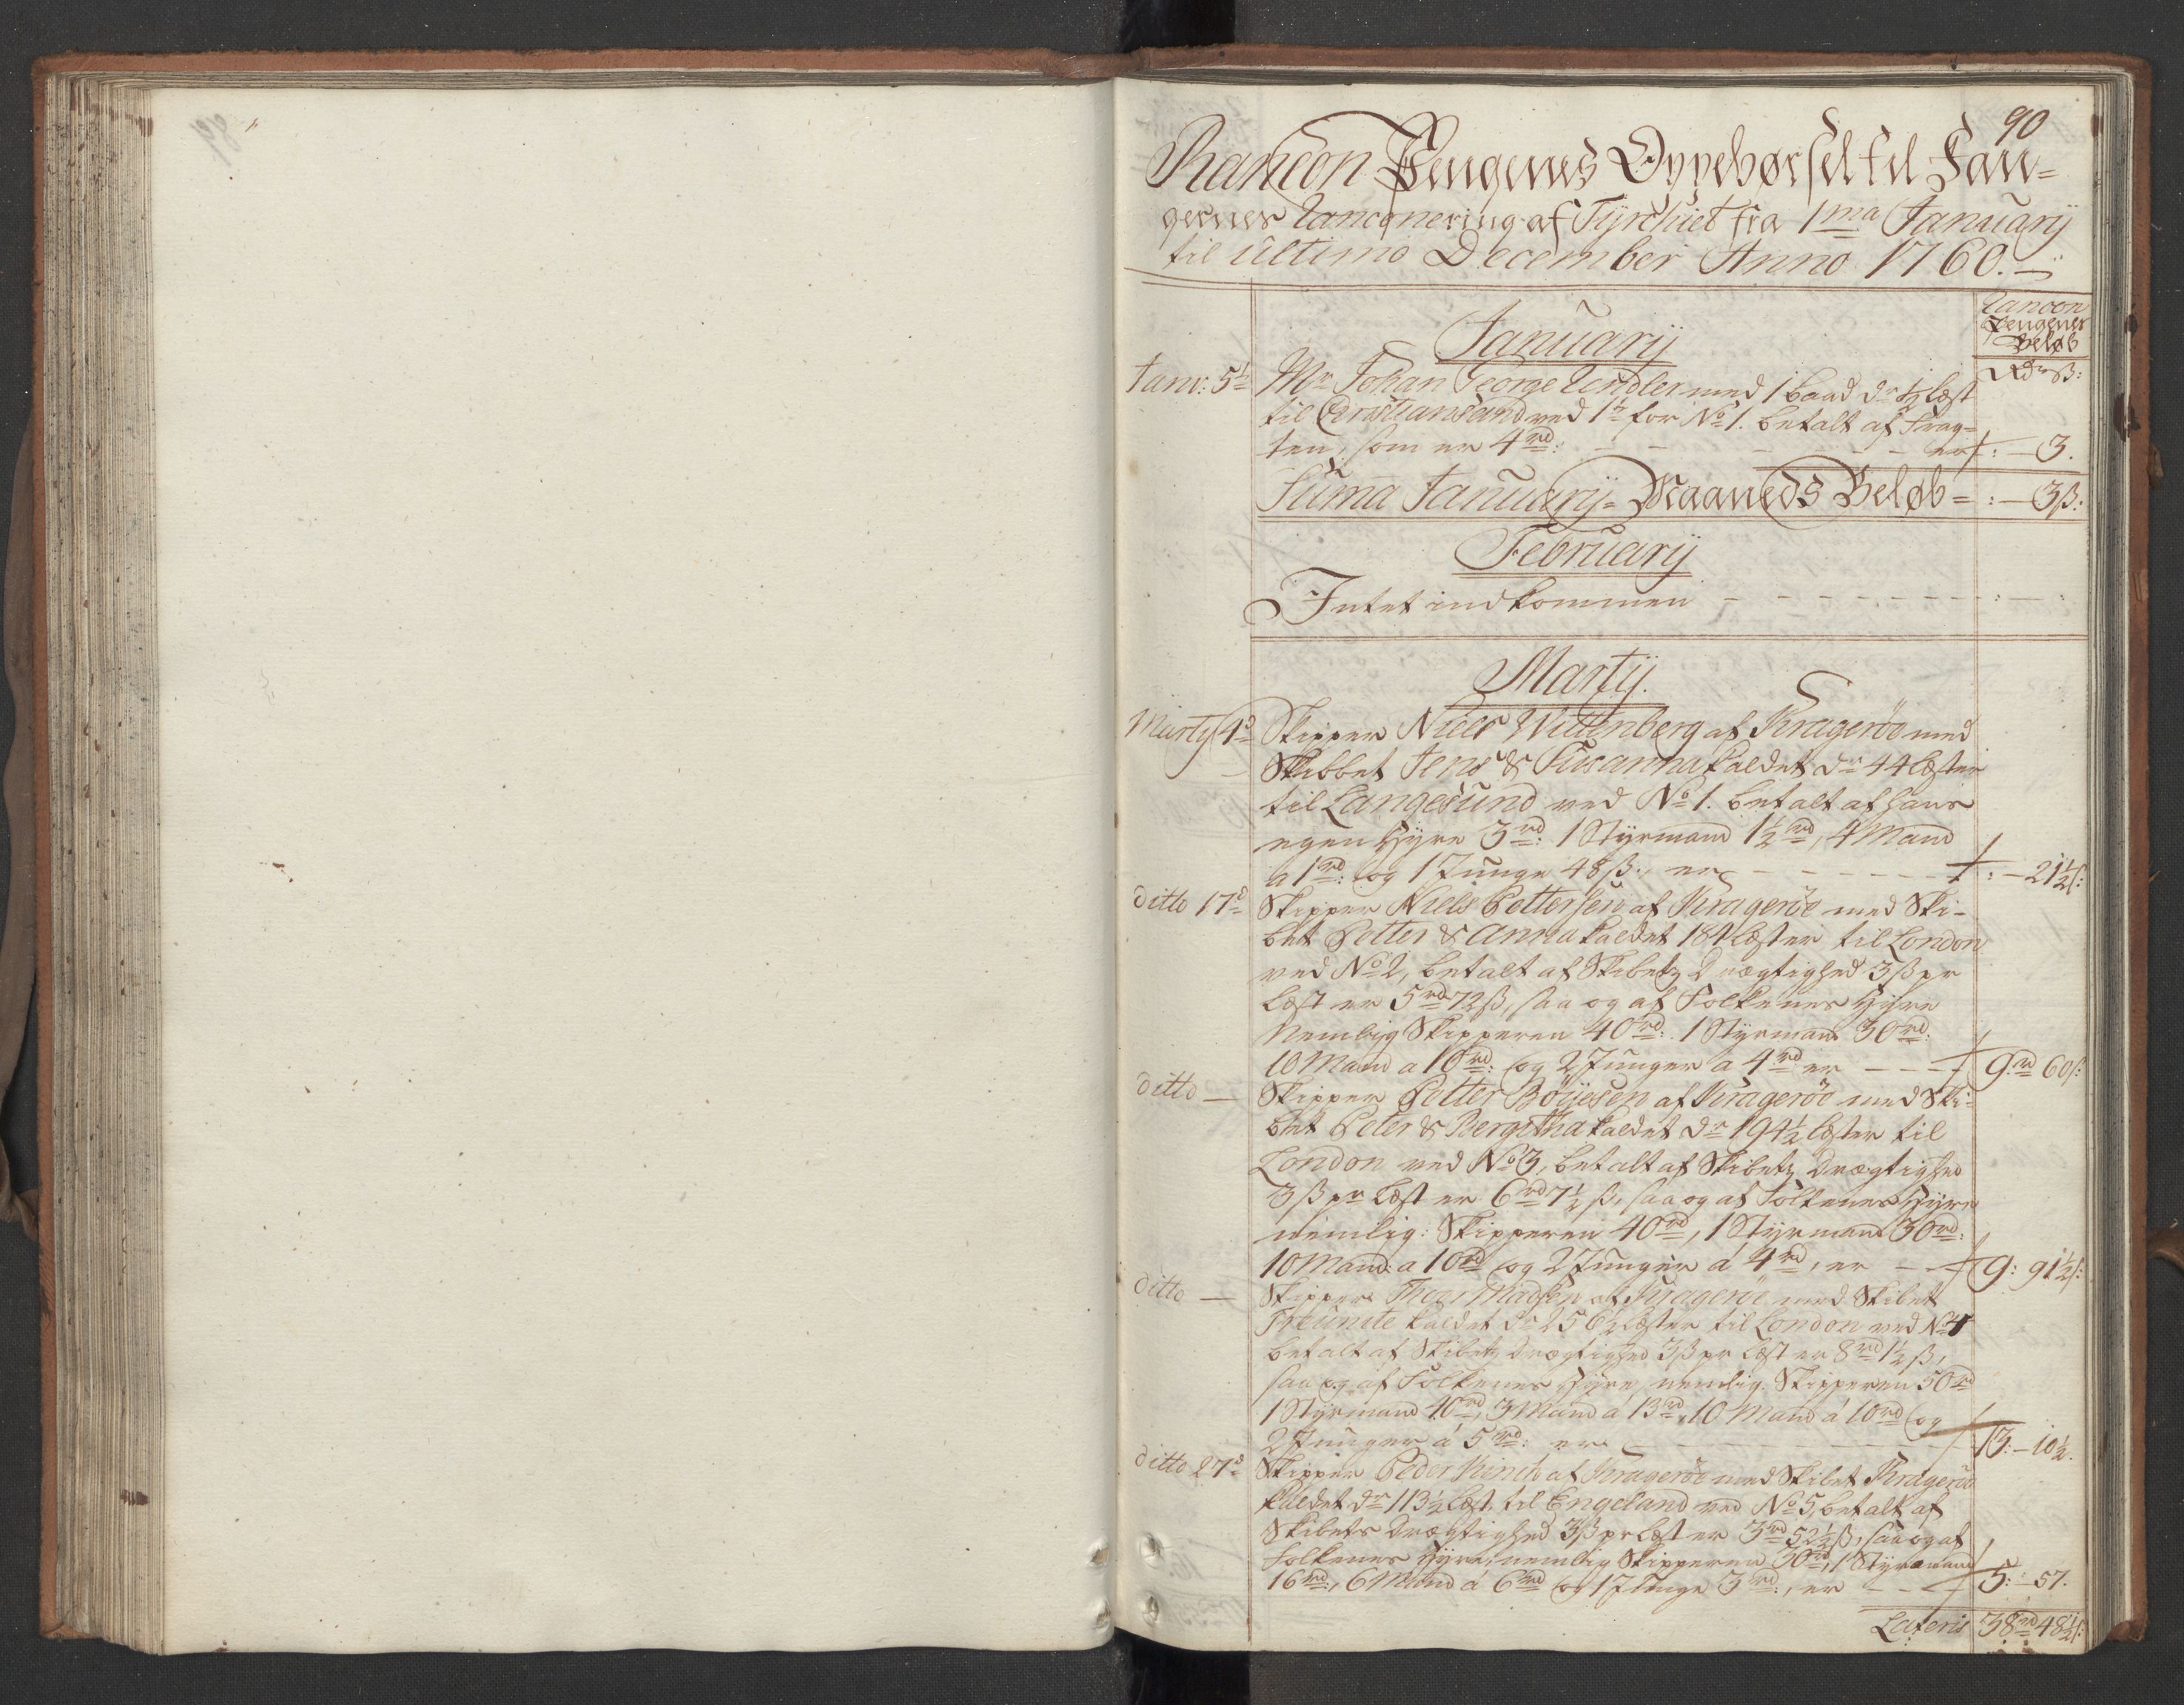 90
Rancon Pengenes Oppebørsel til Fan=
gernes rancionering af Tyrckiet fra 1ma Januarij
til ultimo December Anno 1760.
Rancon
Pengenes
Beløb
Rdr ß:
Januarij
Janv: 5te Mr Johan George Tendler med 1 baad dr ½ læst
til Christiansand ved for No 1. betalt af Frag=
ten, som er 4rd: er : 3.
Suma Januarij Maaneds Beløb = : 3ß:
Februarij
Intet indkommen
Martij.
Martij 4de Skipper Niels Wittenberg af Kragerøe med
Skibbet Jens & Susanna kaldet dr 44 læster
til Langesund ved No 1. betalt af hans
egen Hyre 3rd: 1 Styrmand 1½rd, 4 Mand
a 1rd: og 1 Junge 48ß., er : 21½ß:
ditto 17de Skipper Niels Pettersen af Kragerøe med Ski-
bet Petter & Anna kaldet 184 læster til London
ved No 2, betalt af Skibetz Drægtighed 3ß pr
læst er 5rd 72ß, saa og af Folkenes Hyre
Nemblig Skipperen 40rd: 1 Styrmand 30rd:
10 Mand a 10rd: og 2 Junger a 4rd er 9rd 60ß:
ditto Skipper Petter Böyesen af Kragerøe med Ski=
bet Peter & Bergitha kaldet dr 194½ læster til
London ved No 3, betalt af Skibetz Drægtighed
3ß pr læst er 6rd 7½ß, saa og af Folkenes Hyre
nemlig: Skipperen 40rd, 1 Styrmand 30rd:
10 Mand: a 10rd og 2 Junger á 4rd, er 9: 91½ß:
ditto Skipper Thor Madsen af Kragerøe med Skibet
Freunde kaldet dr 256½ læster til London ved No 4
betalt af Skibetz Drægtighed 3ß pr læst er 8rd 1½ß,
saa og af Folkenes Hyre, nemlig: Skipperen 50rd
1 Styrmand 40rd, 3 Mand á 13rd, 10 Mand á 10rd og
2 Junger á 5rd: er 13: 10½.
ditto 27de Skipper Peder Kinch af Kragerøe med Skibet Kragerøe
kaldet dr 113½ læst. til Engeland ved No 5, betalt af
Skibets Drægtighed 3ß pr læst er 3rd 52½ß, saa og af
Folkenes Hyre, nemlig Skipperen 30rd, 1 Styrmand
16rd:, 6 Mand á 6rd og 1 Junge 3rd:, er 5: 57.
Lateris 38rd 48½ß: